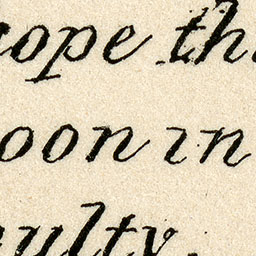 ope th
oon in
ulty.